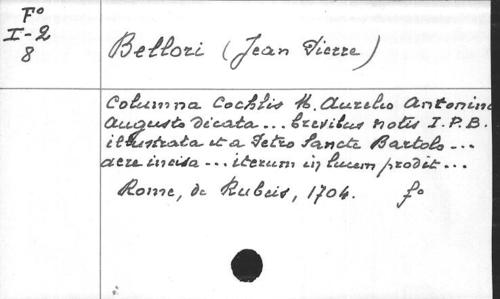 Fo
I-2
8
Bellori (Jean Pierre)
Columna Cochlis M. Aurelio Antonino
Augusto dicata ... brevibus notis I.P.B.
illustrata et a Petro Sancte Bartolo ...
aere incisa ... iterum in lucem prodit ...
Rome, de Rubeis, 1704. fo